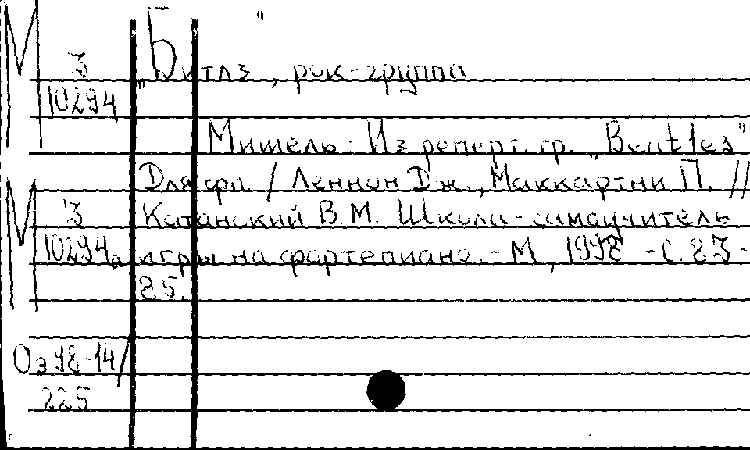 М
З
10294
„Битлз", рок-группа
Мишель: Из реперт. гр. „Beatles"
Для фп. / Леннон Дж., Маккартни П. //
М
З
10294а
Катанский В.М. Школа-самоучитель
игры на фортепиано. - М., 1998 - С. 83-
85.
Оз 98-14/
225